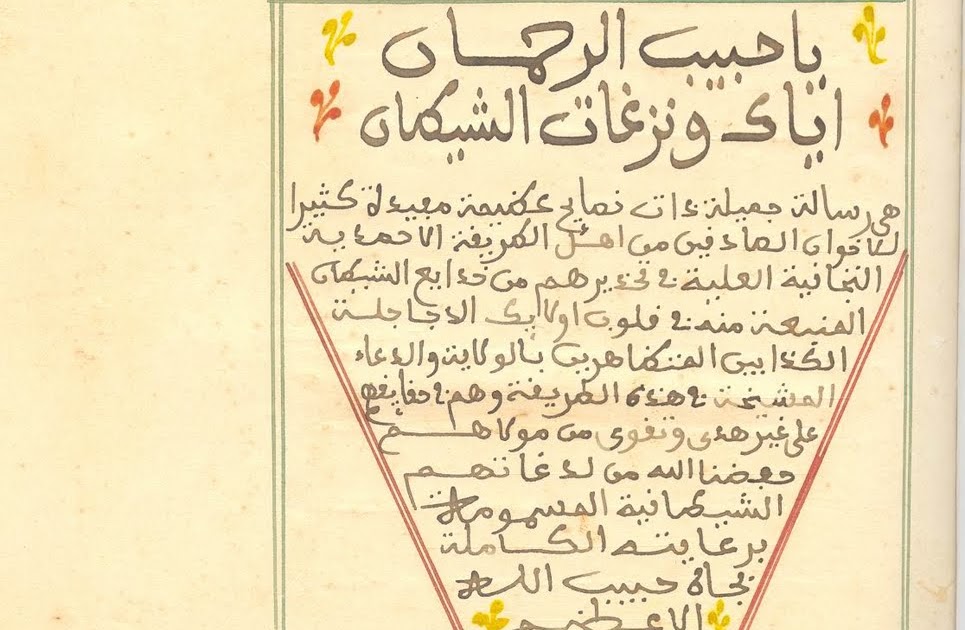 يا حبيب الرحمان
اياك ونزغات الشيطان
هي رسالة جميلة ذات نصايح عظيمة مفيدة كثيرا
للاخوان الصادقين من اهل الطريقة الاحمدية
التجانية العلية في تحذيرهم من خدايع الشيطان
المنبعثة منه في قلوب اولايك الدجاجلة
الكذابين المتظاهرين بالولاية والادعاء
المشيخة في هذه الطريقة وهم في حقايقهم
على غير هدى وتقوى من مولاهم
حفضنا الله من لدغاتهم
الشيطانية المسمومة
برعايته الكاملة
بجاه حبيب الله
الاعظم